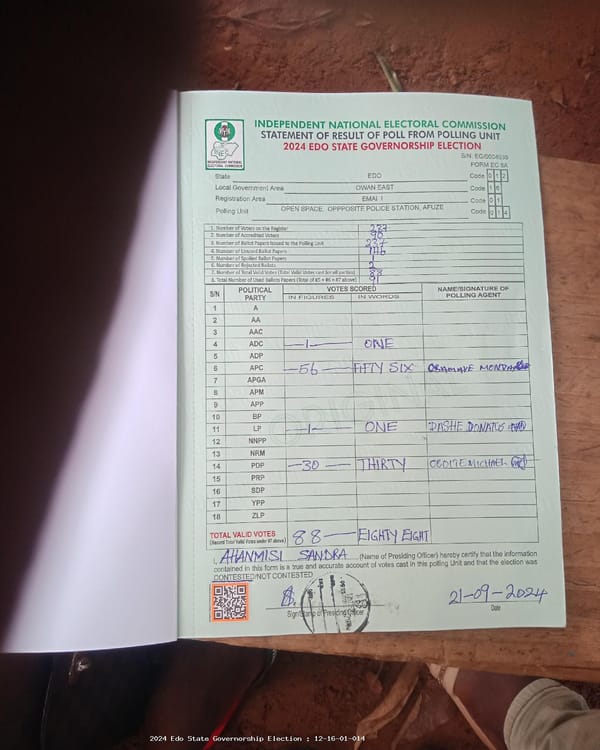 INDEPENDENT NATIONAL ELECTORAL COMMISSION
STATEMENT OF RESULT OF POLL FROM POLLING UNIT
2024 EDO STATE GOVERNORSHIP ELECTION
FORM EC 8A
State EDO Code 0 1 2
Local Government Area OWAN EAST Code 1 6
Registration Area EMAI I Code 0 1
Polling Unit OPEN SPACE, OPPPOSITE POLICE STATION, AFUZE Code 0 1 4
1. Number of Voters on the Register 237
2. Number of Accredited Voters
3. Number of Ballot Papers Issued to the Polling Unit 237
4. Number of Unused Ballot Papers 146
5. Number of Spoiled Ballot Papers 1
6. Number of Rejected Ballots 2
7. Number of Total Valid Votes (Total Valid Votes cast for all parties) 88
8. Total Number of Used Ballots Papers (Total of #5 + #6 + #7 above) 91
S/N POLITICAL PARTY VOTES SCORED NAME/SIGNATURE OF POLLING AGENT
IN FIGURES IN WORDS
1 A
2 AA
3 AAC
4 ADC 1 ONE
5 ADP
6 APC 56 FIFTY SIX
7 APGA
8 APM
9 APP
10 BP
11 LP 1 ONE DASHE DONATUS
12 NNPP
13 NRM
14 PDP 30 THIRTY MICHAEL
15 PRP
16 SDP
17 YPP
18 ZLP
TOTAL VALID VOTES 88 EIGHTY EIGHT
(Record Total Valid Votes under #7 above)
I, AHANMISI SANDRA (Name of Presiding Officer) hereby certify that the information
contained in this form is a true and accurate account of votes cast in this polling Unit and that the election was
CONTESTED/NOT CONTESTED
Sign/Stamp of Presiding Officer
21-09-2024
Date
2024 Edo State Governorship Election : 12-16-01-014